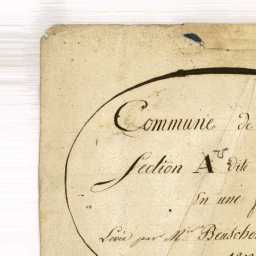 Commune de
Section A dite
En une f
Levée par Mr Beusche